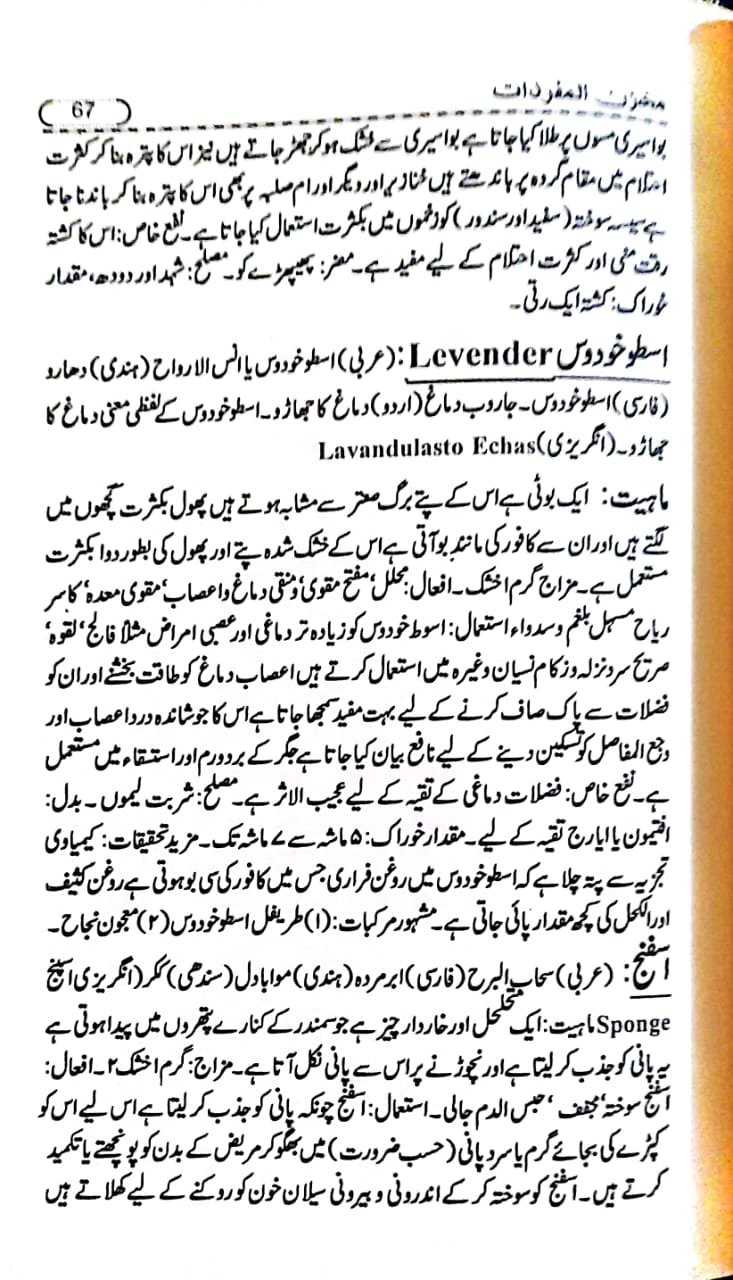 مخزن المفردات
67
بواسیری مسوں پر طلا کیا جاتا ہے بواسیری سے خشک ہو کر جھڑ جاتے ہیں نیز اس کا پترہ بنا کر کثرت
احتلام میں مقام گردہ پر باندھتے ہیں خنازیر اور دیگر اورام صلبہ پر بھی اس کا پترہ بنا کر باندنا جاتا
ہے سیسہ سوختہ (سفید اور سندور) کو زخموں میں بکثرت استعمال کیا جاتا ہے۔ نفع خاص: اس کا کشتہ
رقت منی اور کثرت احتلام کے لیے مفید ہے۔ مضر: پھیپھڑے کو۔ مصلح: شہد اور دودھ، مقدار
خوراک: کشتہ ایک رتی۔
اسطوخودوس Levender: (عربی) اسطوخودوس یا انس الارواح (ہندی) دھارو
(فارسی) اسطوخودوس۔ جاروب دماغ (اردو) دماغ کا جھاڑو۔ اسطوخودوس کے لفظی معنی دماغ کا
جھاڑو۔ (انگریزی) Lavandulasto Echas
ماہیت: ایک بوٹی ہے اس کے پتے برگ صعتر سے مشابہ ہوتے ہیں پھول بکثرت گچھوں میں
لگتے ہیں اور ان سے کافور کی مانند بو آتی ہے اس کے خشک شدہ پتے اور پھول کی بطور دوا بکثرت
مستعمل ہے۔ مزاج گرم ا خشک۔ افعال: محلل‘ مفتح مقوی‘ و منقی دماغ و اعصاب‘ مقوی معدہ‘ کاسر
ریاح مسہل بلغم و سدواء استعمال: اسوط خودوس کو زیادہ تر دماغی اور عصبی امراض مثلاً فالج‘ لقوہ‘
صریح سرد نزلہ و زکام نسیان وغیرہ میں استعمال کرتے ہیں اعصاب دماغ کو طاقت بخشنے اور ان کو
فضلات سے پاک صاف کرنے کے لیے بہت مفید سمجھا جاتا ہے اس کا جوشاندہ درد اعصاب اور
وجع المفاصل کو تسکین دینے کے لیے نافع بیان کیا جاتا ہے جگر کے برد ورم اور استسقاء میں مستعمل
ہے۔ نفع خاص: فضلات دماغی کے تقیہ کے لیے عجیب الاثر ہے۔ مصلح: شربت لیموں۔ بدل:
افتیمون یا ایارج تقیہ کے لیے۔ مقدار خوراک: ۵ ماشہ سے ۷ ماشہ تک۔ مزید تحقیقات: کیمیاوی
تجزیہ سے پتہ چلا ہے کہ اسطوخودوس میں روغن فراری جس میں کافور کی سی بو ہوتی ہے روغن کثیف
اور الکحل کی کچھ مقدار پائی جاتی ہے۔ مشہور مرکبات: (۱) طریفل اسطوخودوس (۲) معجون نجاح۔
اسفنج: (عربی) سحاب البرح (فارسی) ابر مردہ (ہندی) موابادل (سندھی) ککر (انگریزی اسپنج
Sponge ماہیت: ایک متخلحل اور خاردار چیز ہے جو سمندر کے کنارے پتھروں میں پیدا ہوتی ہے
یہ پانی کو جذب کر لیتا ہے اور نچوڑنے پر اس سے پانی نکل آتا ہے۔ مزاج: گرم ا خشک ۲۔ افعال:
اسفنج سوختہ‘ مجفف‘ حبس الدم جالی۔ استعمال: اسفنج چونکہ پانی کو جذب کر لیتا ہے اس لیے اس کو
کپڑے کی بجائے گرم یا سرد پانی (حسب ضرورت) میں بھگو کر مریض کے بدن کو پونچھتے یا تکمید
کرتے ہیں۔ اسفنج کو سوختہ کر کے اندرونی و بیرونی سیلان خون کو روکنے کے لیے کھلاتے ہیں